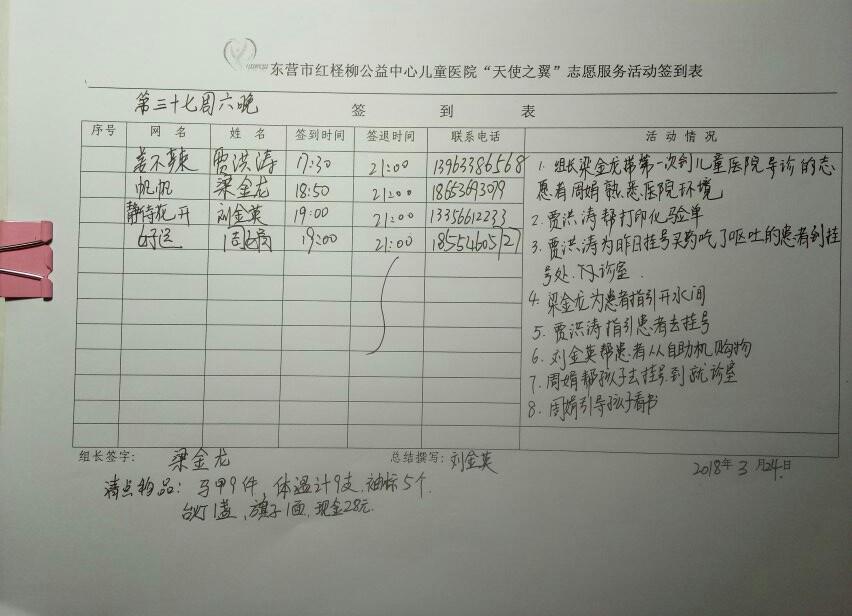 东营市红柽柳公益中心儿童医院“天使之翼”志愿服务活动签到表
第三十七周六晚
签 到 表
序号 网 名 姓 名 签到时间 签退时间 联系电话 活 动 情 况
姜不辣 贾洪涛 17:30 21:00 13963386568
帆帆 梁金龙 18:50 21:00 18653693099
静待花开 刘金英 19:00 21:00 13356612233
好运 周娟 19:00 21:00 18554605127
1. 组长梁金龙带第一次到儿童医院导诊的志
愿者周娟熟悉医院环境
2. 贾洪涛帮打印化验单
3. 贾洪涛为昨日挂号买药吃了呕吐的患者到挂
号处、及诊室.
4. 梁金龙为患者指引开水间
5. 贾洪涛指引患者去挂号
6. 刘金英帮患者从自助机购物
7. 周娟帮孩子去挂号到就诊室
8. 周娟引导孩子看书
组长签字: 梁金龙 总结撰写: 刘金英 2018年 3 月24日
清点物品: 马甲9件, 体温计9支. 袖标5个.
台灯1盏, 旗子1面. 现金28元.